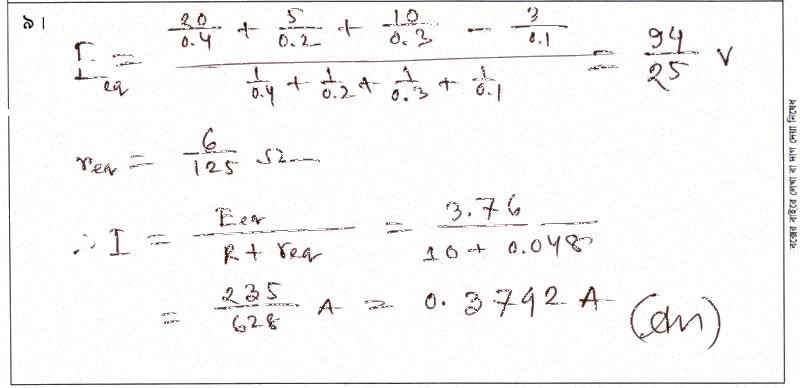 ৯।
E_eq = (20/0.4 + 5/0.2 + 10/0.3 - 3/0.1) / (1/0.4 + 1/0.2 + 1/0.3 + 1/0.1) = 94/25 V
r_eq = 6/125 Ω
∴ I = E_eq / (R + r_eq) = 3.76 / (10 + 0.048)
= 235/628 A = 0.3742 A (Ans)
বক্সের বাইরে লেখা বা দাগ দেয়া নিষেধ